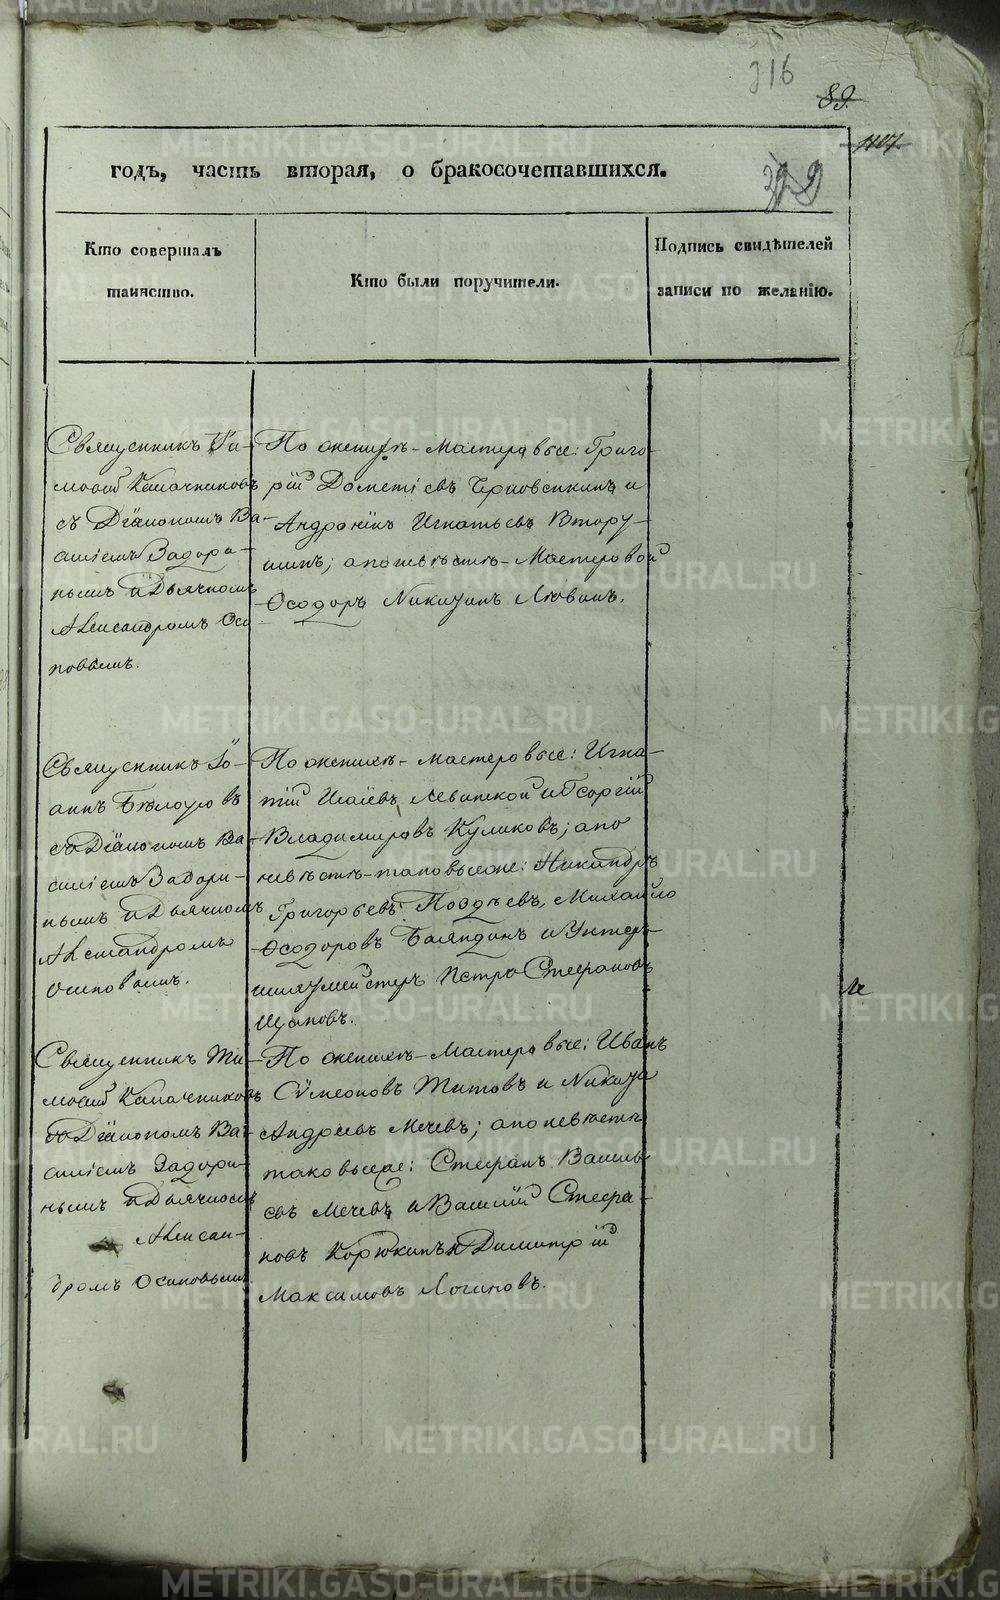 316
89.
годъ, часть вторая, о бракосочетавшихся.
Кто совершалъ
таинство.
Кто были поручители.
Подпись свидѣтелей
записи по желанію.
Священникъ Ти-
моѳей Калачниковъ
съ Діакономъ Ва-
силіемъ Задори-
нымъ и Дьячкомъ
Александромъ Оси
повымъ.
По женихѣ - Мастеровые: Григо-
рій Дометіевъ и
Андроникъ Игнатьевъ Втору-
шинъ; а по невѣстѣ - Мастеровой
Ѳеодоръ Никитинъ Лювинъ.
Священникъ Іо-
аннъ Бѣлоусовъ
съ Діакономъ Ва-
силіемъ Задори-
нымъ и Дьячкомъ
Александромъ
Осиповымъ.
По женихѣ - мастеровые: Игна-
тій Исаіевъ Левитской и Георгій
Владимировъ Куликовъ; а по
невѣстѣ - таковыеже: Никандръ
Григорьевъ Поздѣевъ, Михайло
Ѳеодоровъ Баландинъ и Унтеръ
шихтмейстеръ Петръ Стефановъ
Щаповъ.
Священникъ Ти-
моѳей Калачниковъ
съ Діакономъ Ва-
силіемъ Задори-
нымъ и Дьячкомъ
Алексан-
дромъ Осиповымъ.
По женихѣ - Мастеровые: Иванъ
Сѵмеоновъ Титовъ и Никита
Андреевъ Мечевъ; а по невѣстѣ
таковыеже: Стефанъ Василь
евъ Мечевъ и Василій Стефа-
новъ Корюкинъ и Димитрій
Максимовъ Логиновъ.
METRIKI.GASO-URAL.RU